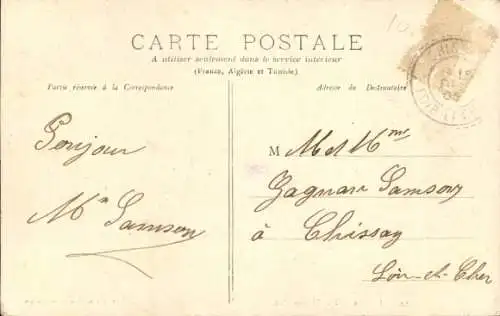 CARTE POSTALE
A utiliser seulement dans le service intérieur
(France, Algérie et Tunisie)
Partie réservée à la Correspondance
Adresse du Destinataire
Bonjour
Mlle Samson
M M et Mme
Samson
à Chissay
Loir-et-Cher